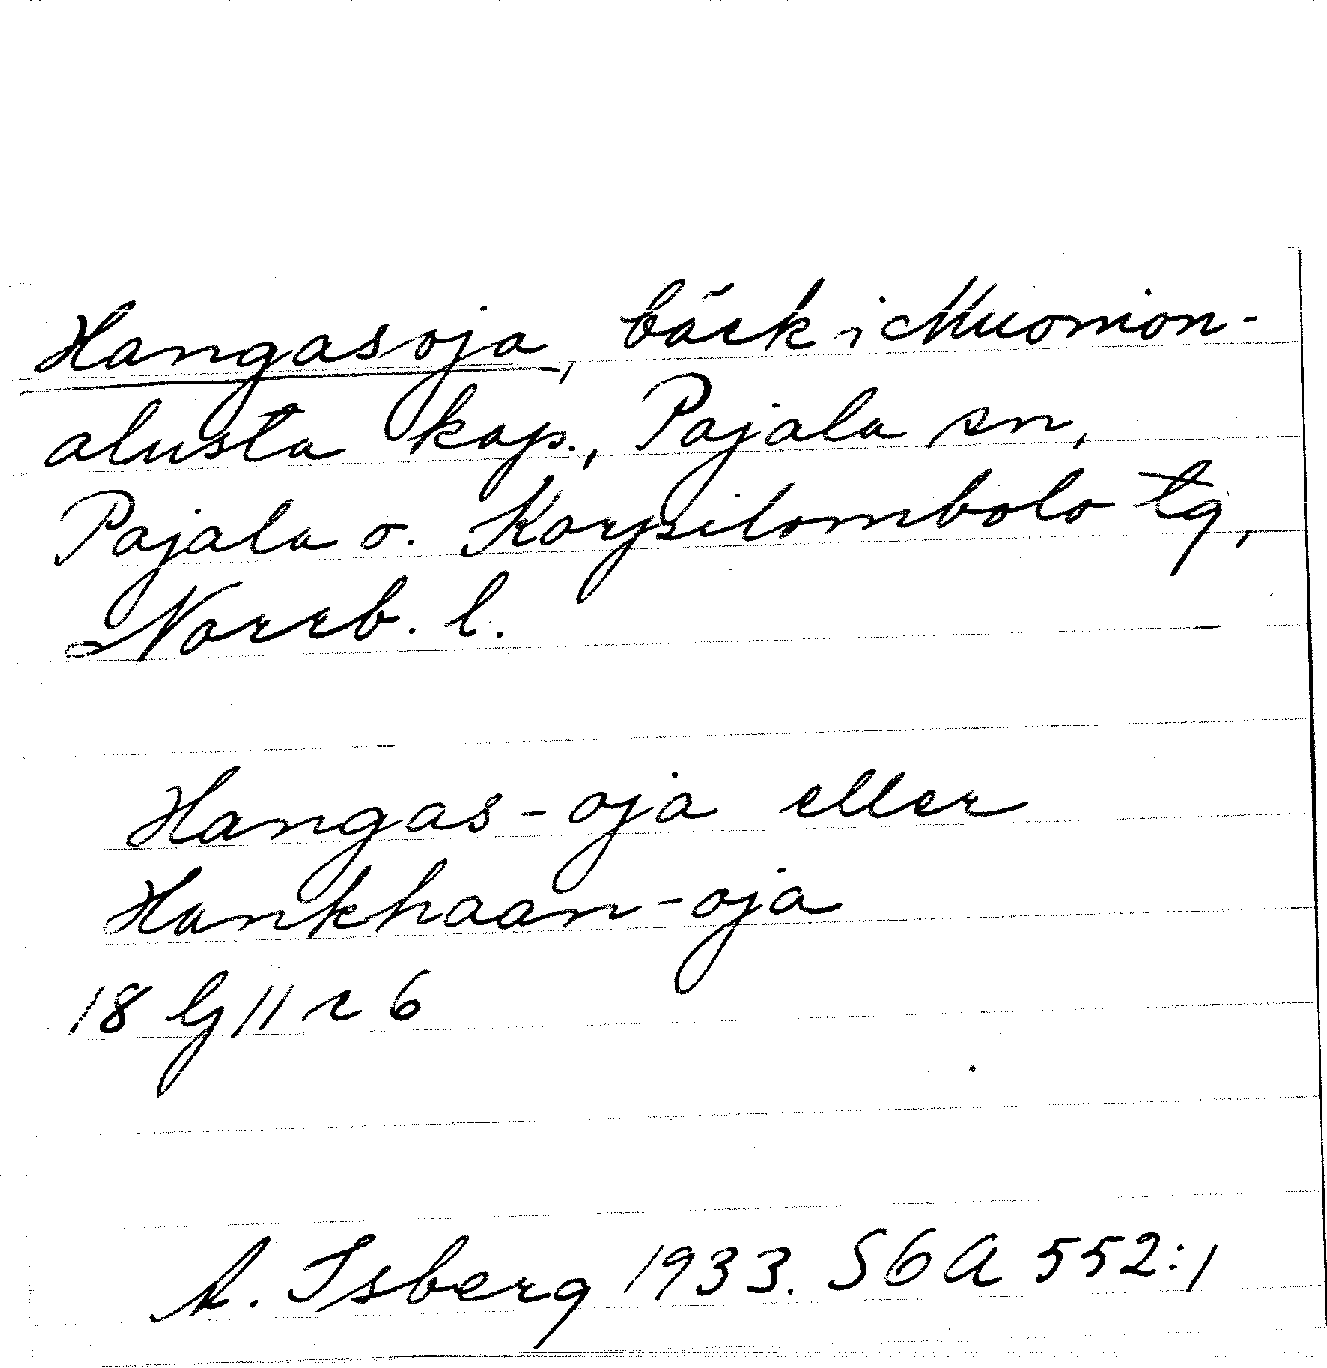 Hangasoja, bäck i Muonion-
alusta kap., Pajala sn,
Pajala o. Korpilombolo tg,
Norrb. l.
Hangas-oja eller
Hankhaan-oja
18 G 11 r 6
A. Isberg 1933. SGA 552:1